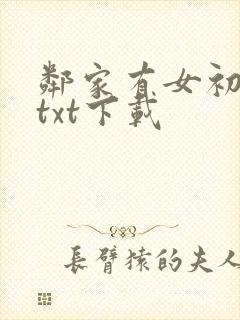 鄰家有女初
txt下載
長臂猿的夫人